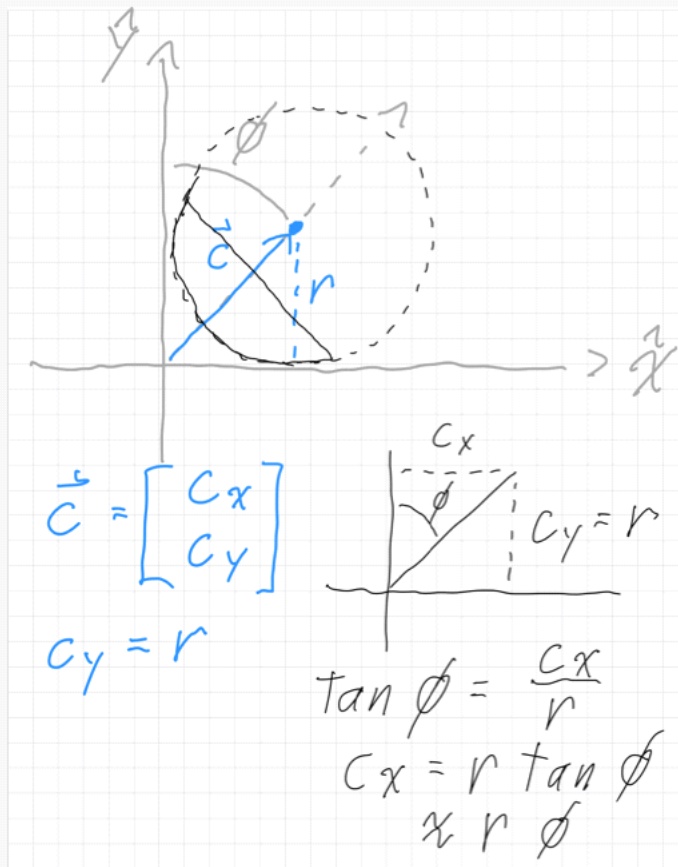 ŷ
ϕ
c⃗
r
x̂
c⃗ = [ Cx
Cy ]
Cy = r
Cx
ϕ
Cy = r
tan ϕ = Cx / r
Cx = r tan ϕ
≈ r ϕ